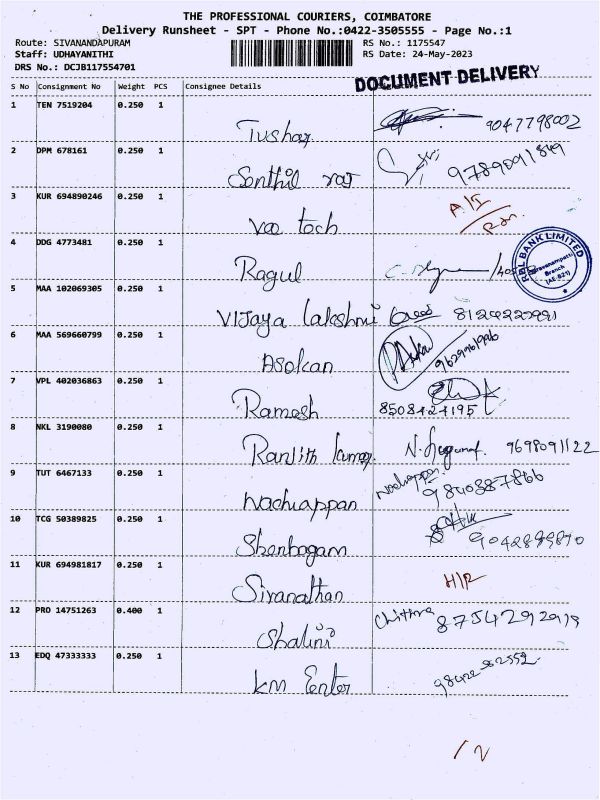 THE PROFESSIONAL COURIERS, COIMBATORE
Delivery Runsheet - SPT - Phone No.:0422-3505555 - Page No.:1
Route: SIVANANDAPURAM RS No.: 1175547
Staff: UDHAYANITHI RS Date: 24-May-2023
DRS No.: DCJB117554701
DOCUMENT DELIVERY
S No Consignment No Weight PCS Consignee Details
1 TEN 7519204 0.250 1 Tushar 9047798002
2 DPM 678161 0.250 1 Senthil raj 9789091849
3 KUR 694890246 0.250 1 Vee tech A/I
4 DDG 4773481 0.250 1 Ragul
RBL BANK LIMITED
Saravanampatti
Branch
5 MAA 102069305 0.250 1 Vijaya lakshmi 8124222991
6 MAA 569660799 0.250 1 Asokan 9629961996
7 VPL 402036863 0.250 1 Ramesh 8508424195
8 NKL 3190080 0.250 1 Ranjith kumar 9698091122
9 TUT 6467133 0.250 1 Nachiappan Nachiappan 9840887866
10 TCG 50389825 0.250 1 Shenbagam
11 KUR 694981817 0.250 1 Sivanathan H/R
12 PRO 14751263 0.400 1 Shalini Chithra 8754292919
13 EDQ 47333333 0.250 1 KM Enter 9842282552